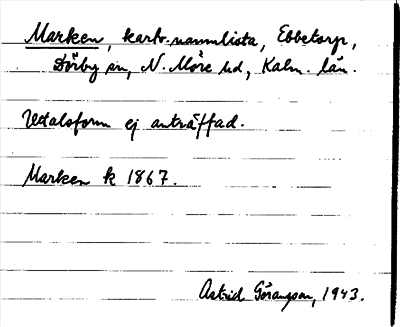 Marken, kartv.namnlista, Ebbetorp,
Dörby sn, N. Möre hd, Kalm. län.
Uttalsform ej anträffad.
Marken k 1867.
Astrid Göransson, 1943.